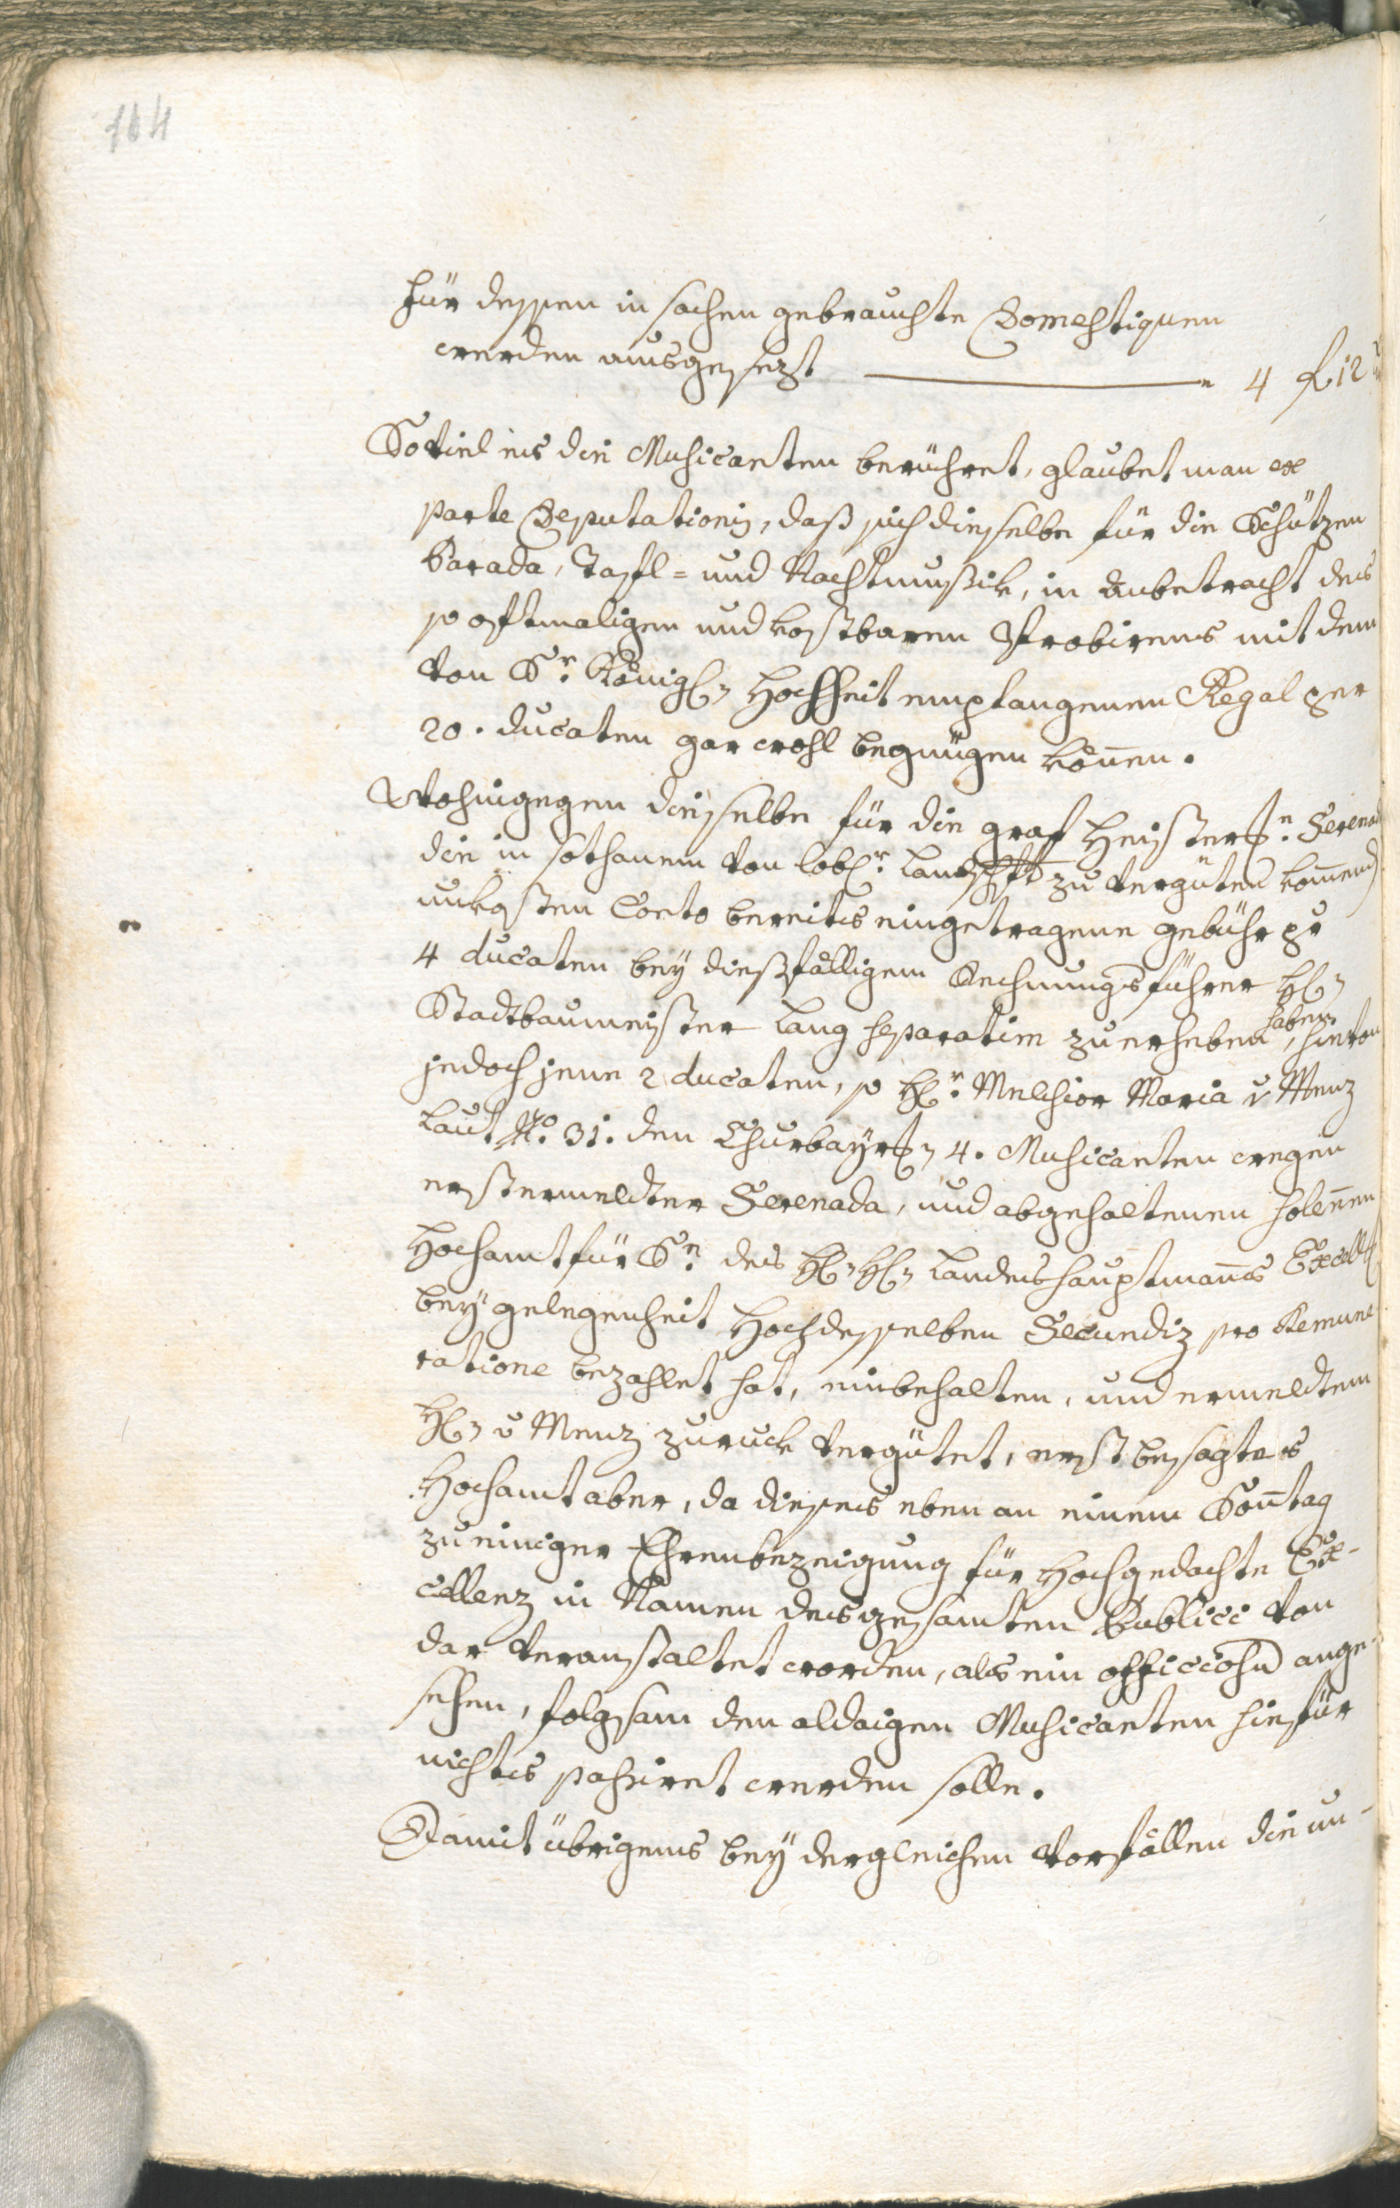 164
für dessen in sachen gebrauchte Domestiquen
werden ausgesezt 4 f 12
Soviel nis die Musicanten berühret, glaubet man ex
parte Deputationis, daß sich dieselbe für die Schützen
Parada, Tafl- und Nachtmußik, in anbetracht des
so oftmaligen und kostbaren Probirens mit dem
von Sr. Königl. Hochheit empfangenen Regal per
20. ducaten gar wohl begnügen können.
Wohingegen dieselbe für die graf Heister. Serenad
die in sothanem von lobl. Landschft zu vergüten komend
unkosten Conto bereits eingetragene gebühr pr
4 ducaten bey dießfälligem Rechnungsführer H.
Stadtbaumeister Lang separatim zu erheben haben, hievon
jedoch jene 2 ducaten, so Hr. Melchior Maria v Menz
laut No. 31. den Churbayr. 4. Musicanten wegen
erstermeldter Serenada, und abgehaltenen solennen
Hochamt für Sr. des H. H. Landeshauptmans Excell
bey gelegenheit Hochdesselben Secundiz pro Remune
ratione bezahlet hat, einbehalten, und ermeldtem
H. v Menz zuruck vergütet, erst besagtes
Hochamt aber, da dieses eben an einem Sontag
zu einiger Ehrenbezeigung für Hochgedachte Ex-
cellenz in Namen des gesamten Publici von
dar veranstaltet worden, als ein officiosum ange-
sehen, folgsam den aldaigen Musicanten hiefür
nichts passiret werden solle.
Damit übrigens bey dergleichen Vorfällen die un-